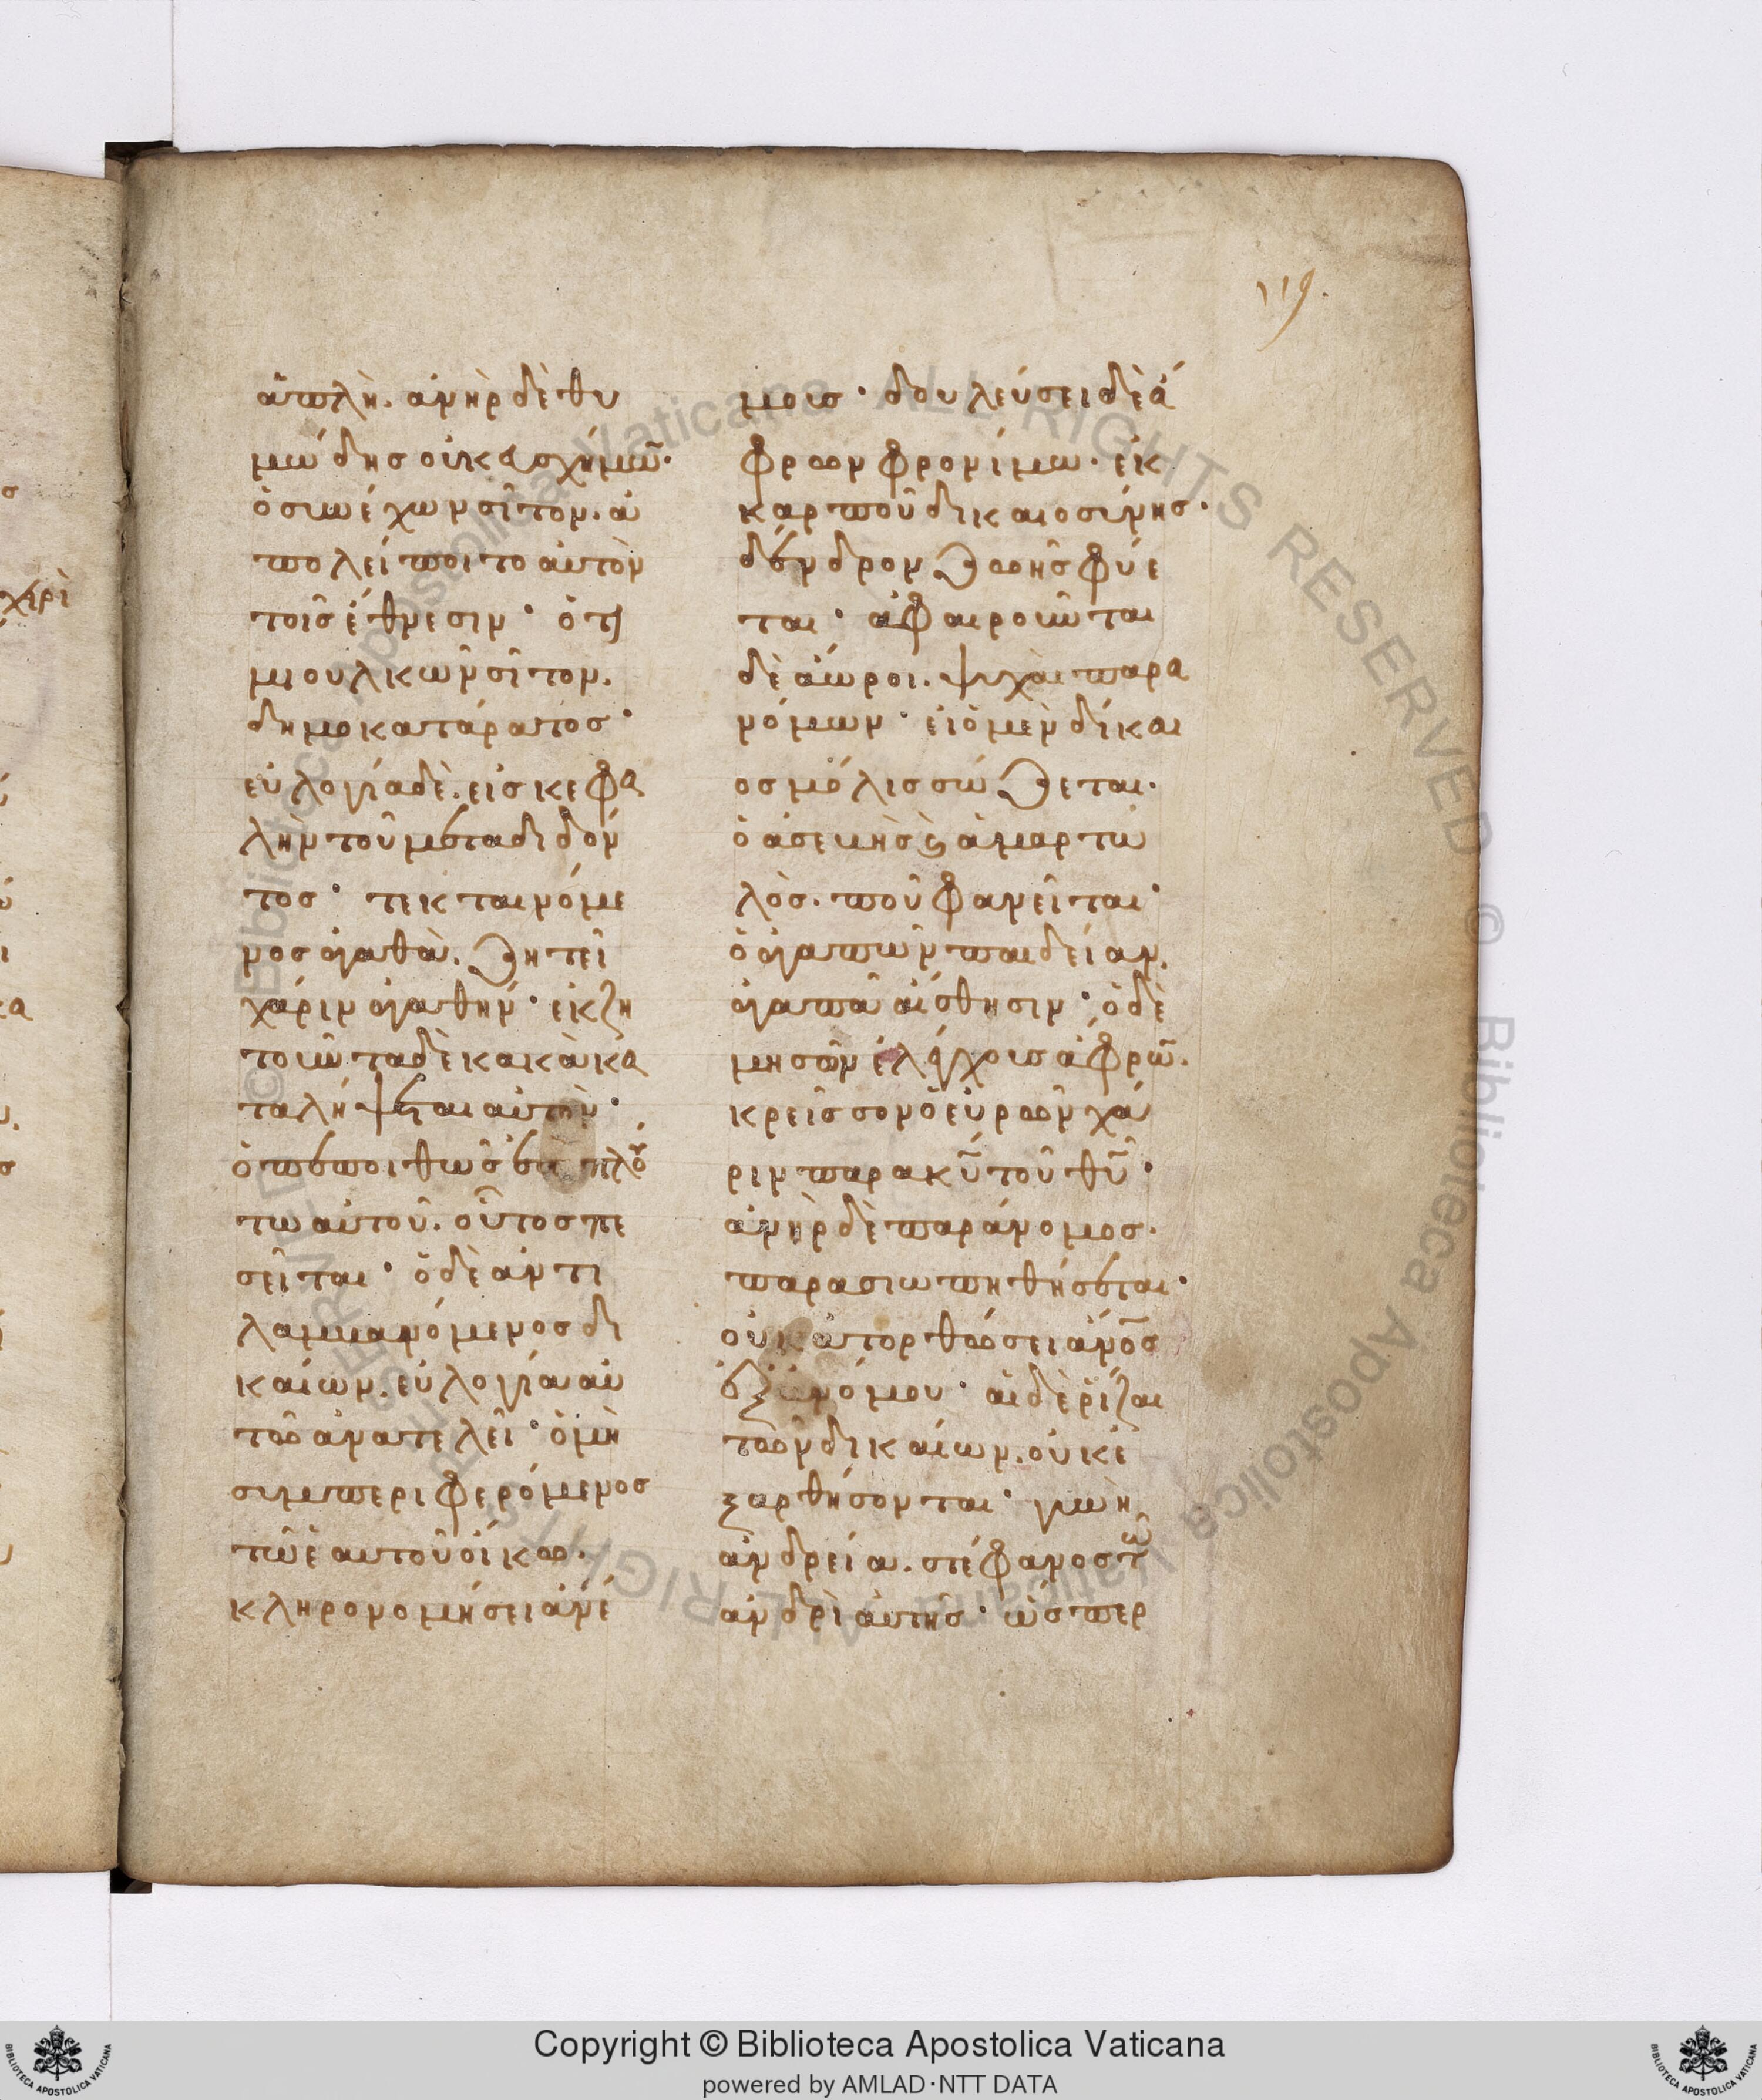 119.
ἁπλῆ. ἀνὴρ δὲ θυ
μώδης οὐκ εὐσχήμω̅·
ὁ συνέχων σῖτον. ἀ
πολείποιτο αὐτὸν
τοῖς ἔθνεσιν· ὁ τι
μιουλκῶν σῖτον.
δημοκατάρατος·
εὐλογία δὲ. εἰς κεφα
λὴν τοῦ μεταδιδόν
τος· τεκταινόμε
νος ἀγαθὰ. ζητεῖ
χάριν ἀγαθήν· ἐκζη
τοῦντα δὲ κακὰ κα
ταλήψεται αὐτὸν·
ὁ πεποιθὼς ἐπὶ πλού
τω αὐτοῦ. οὗτος πε
σεῖται· ὁ δὲ ἀντι
λαμβανόμενος δι
καίων. εὐλογία αὐ
τῶ ἀνατελεῖ· ὁ μὴ
συμπεριφερόμενος
τῶ ἑαυτοῦ οἴκω.
κληρονομήσει ἀνέ
μους· δουλεύσει δὲ ἄ
φρων φρονίμω· ἐκ
καρποῦ δικαιοσύνης·
δένδρον ζωῆς φύε
ται· ἀφαιροῦνται
δὲ ἄωροι. ψυχὰι παρα
νόμων· εἰ ὁ μὲν δίκαι
ος μόλις σώζεται.
ὁ ἀσεβὴς ϗ ἁμαρτω
λὸς. ποῦ φανεῖται·
ὁ ἀγαπῶν παιδείαν.
ἀγαπᾶ αἴσθησιν· ὁ δὲ
μισῶν ἐλέγχους ἄφρω̅.
κρείσσον ὁ εὑρὼν χά
ριν παρα κ̅υ̅ τοῦ θ̅υ̅·
ἀνὴρ δὲ παράνομος.
παρασιωπηθήσεται·
οὐ κατορθώσει ἀ̅ν̅ο̅ς̅
ἐξ ἀνόμου· αἱ δὲ ῥίζαι
τῶν δικαίων. οὐκ ἐ
ξαρθήσονται· γυνὴ
ἀνδρεία. στέφανος τῶ
ἀνδρὶ ἀυτῆς· ὥσπερ
Copyright © Biblioteca Apostolica Vaticana
powered by AMLAD·NTT DATA